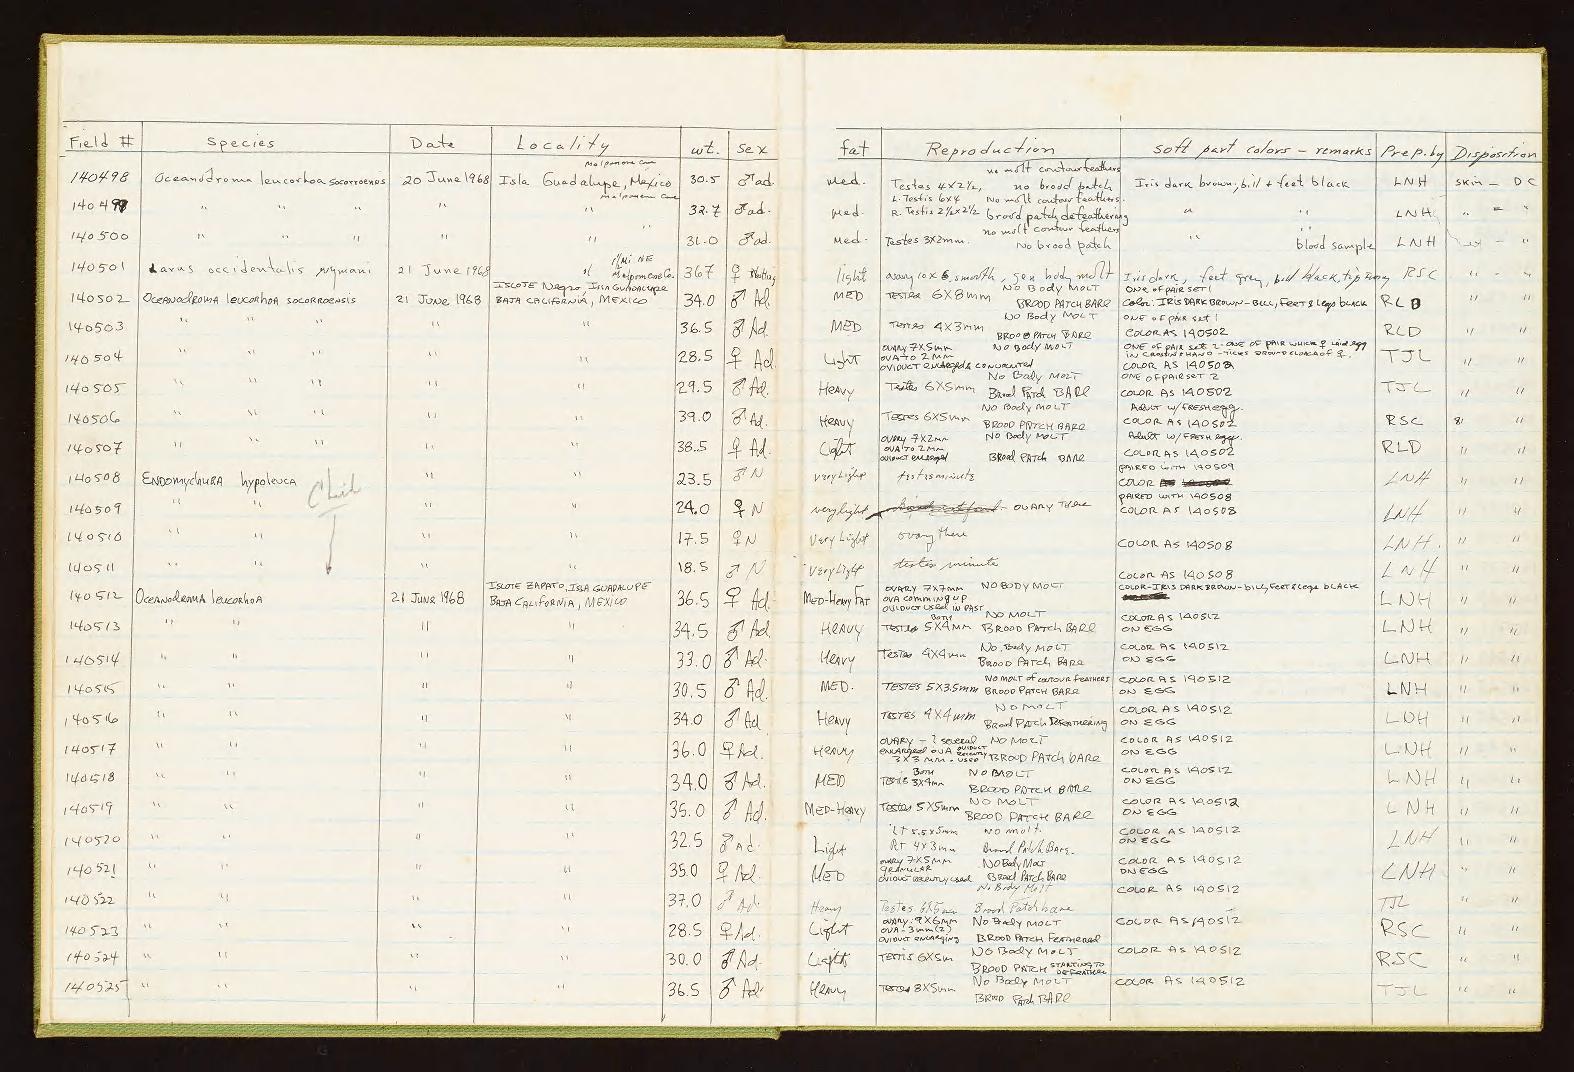 Field # Species Date Locality wt. sex fat Reproduction soft part colors - remarks Prep. by Disposition
Malpomene Cove no molt contour feathers
140498 Oceanodroma leucorhoa socorroensis 20 June 1968 Isla Guadalupe, Mexico 30.5 ♂ad. Med. Testes 4x2½, no brood patch Iris dark brown, bill + feet black LNH skin - DC
Malpomene Cove L. Testis 6x4 No molt contour feathers.
140499 " " " " " 32.7 ♂ad. Med. R. Testis 2½x2½ brood patch defeathering " " LNH " = "
" no molt contour feathers
140500 " " " " " 31.0 ♂ad. Med. Testes 3x2mm. No brood patch " " blood sample LNH " - "
1/4 Mi NE
140501 Larus occidentalis wymani 21 June 1968 " Malpomene Co. 367 ♀ light ovary 10x6, smooth, gen body molt Iris dark, feet grey, bill black, tip RSC " - "
ISLOTE Negro, ISLA GUADALUPE No Body MOLT ONE OF PAIR SET 1
140502 Oceanodroma leucorhoa socorroensis 21 June 1968 BAJA CALIFORNIA, MEXICO 34.0 ♂ Ad. MED TESTES 6X8mm BROOD PATCH BARE Color: IRIS DARK BROWN - BILL, FEET & legs BLACK RLD
No Body MOLT ONE OF PAIR SET 1
140503 " " " " " 36.5 ♂ Ad. MED TESTES 4X3mm BROOD PATCH BARE COLOR AS 140502 RLD " "
OVARY 7X5mm No Body MOLT ONE OF PAIR SET 2 - ONE OF PAIR WHICH ♀ laid egg
140504 " " " " " 28.5 ♀ Ad Light OVA TO 2MM IN CROSSIN'S HAND - TICKS AROUND CLOACA OF ♀. TJL " "
OVIDUCT enlarged & CONVOLUTED COLOR AS 140502
No Body MOLT ONE OF PAIR SET 2
140505 " " " " " 29.5 ♂ Ad. HEAVY Testes 6X5mm Brood Patch BARE COLOR AS 140502 TJL " "
No Body MOLT Adult w/ FRESH egg.
140506 " " " " " 39.0 ♂ Ad. HEAVY TESTES 6X5mm BROOD PATCH BARE COLOR AS 140502 RSC "
OVARY 7X2mm No Body MOLT Adult w/ FRESH egg.
140507 " " " " " 38.5 ♀ Ad. Light OVA TO 2MM COLOR AS 140502 RLD " "
OVIDUCT enlarged BROOD PATCH BARE
PAIRED WITH 140509
140508 ENDOMYCHURA hypoleuca " " 23.5 ♂ N Very Light testes minute COLOR AS LNH " "
Chick
PAIRED WITH 140508
140509 " " " " 24.0 ♀ N very light OVARY There COLOR AS 140508 LNH " "
140510 " " " " 17.5 ♀ N Very Light ovary there COLOR AS 140508 LNH. " "
140511 " " " " 18.5 ♂ N Very Light testes minute COLOR AS 140508 LNH " "
ISLOTE ZAPATO, ISLA GUADALUPE OVARY 7X7mm NO BODY MOLT COLOR - IRIS DARK BROWN - bill, Feet & legs BLACK
140512 OCEANODROMA leucorhoa 21 June 1968 BAJA CALIFORNIA, MEXICO 36.5 ♀ Ad. MED-HEAVY FAT OVA COMMING UP LNH " "
OVIDUCT USED IN PAST
Both NO MOLT COLOR AS 140512
140513 " " " " 34.5 ♂ Ad. HEAVY TESTES 5X4MM BROOD PATCH BARE ON EGG LNH " "
No Body MOLT COLOR AS 140512
140514 " " " " 33.0 ♂ Ad. Heavy Testes 4X4mm BROOD PATCH BARE ON EGG LNH " "
NO MOLT of CONTOUR FEATHERS COLOR AS 140512
140515 " " " " 30.5 ♂ Ad. MED. TESTES 5X3.5mm BROOD PATCH BARE ON EGG LNH " "
NO MOLT COLOR AS 140512
140516 " " " " 34.0 ♂ Ad Heavy TESTES 4X4mm Brood PATCH DEFEATHERING ON EGG LNH " "
OVARY - ? several NO MOLT COLOR AS 140512
140517 " " " " 36.0 ♀ Ad. HEAVY ENLARGED OVA OVIDUCT RECENTLY ON EGG LNH " "
3X3 MM. USED BROOD PATCH BARE
Both NO MOLT COLOR AS 140512
140518 " " " " 34.0 ♂ Ad. MED TESTIS 3X4mm BROOD PATCH BARE ON EGG LNH " "
NO MOLT COLOR AS 140512
140519 " " " " 35.0 ♂ Ad. MED-HEAVY TESTES 5X5mm BROOD PATCH BARE ON EGG LNH " "
LT 5.5x5mm NO MOLT. COLOR AS 140512
140520 " " " " 32.5 ♂ Ad. Light RT 4X3mm Brood Patch Bare. ON EGG LNH " "
OVARY 7X5MM NO Body MOLT COLOR AS 140512
140521 " " " " 35.0 ♀ Ad. MED GRANULAR ON EGG LNH " "
OVIDUCT RECENTLY USED Brood Patch BARE
No Body Molt COLOR AS 140512
140522 " " " " 37.0 ♂ Ad. Heavy Testes 6X5mm Brood Patch bare TJL " "
OVARY: 9X6mm No Body MOLT COLOR AS 140512
140523 " " " " 28.5 ♀ Ad. Light OVA - 3mm (2) RSC " "
OVIDUCT ENLARGING BROOD PATCH FEATHERED
No Body MOLT COLOR AS 140512
140524 " " " " 30.0 ♂ Ad. Light TESTIS 6X5m BROOD PATCH STARTING TO DEFEATHER RSC " "
No Body MOLT COLOR AS 140512
140525 " " " " 36.5 ♂ Ad HEAVY TESTES 8X5mm BROOD Patch BARE TJL " "